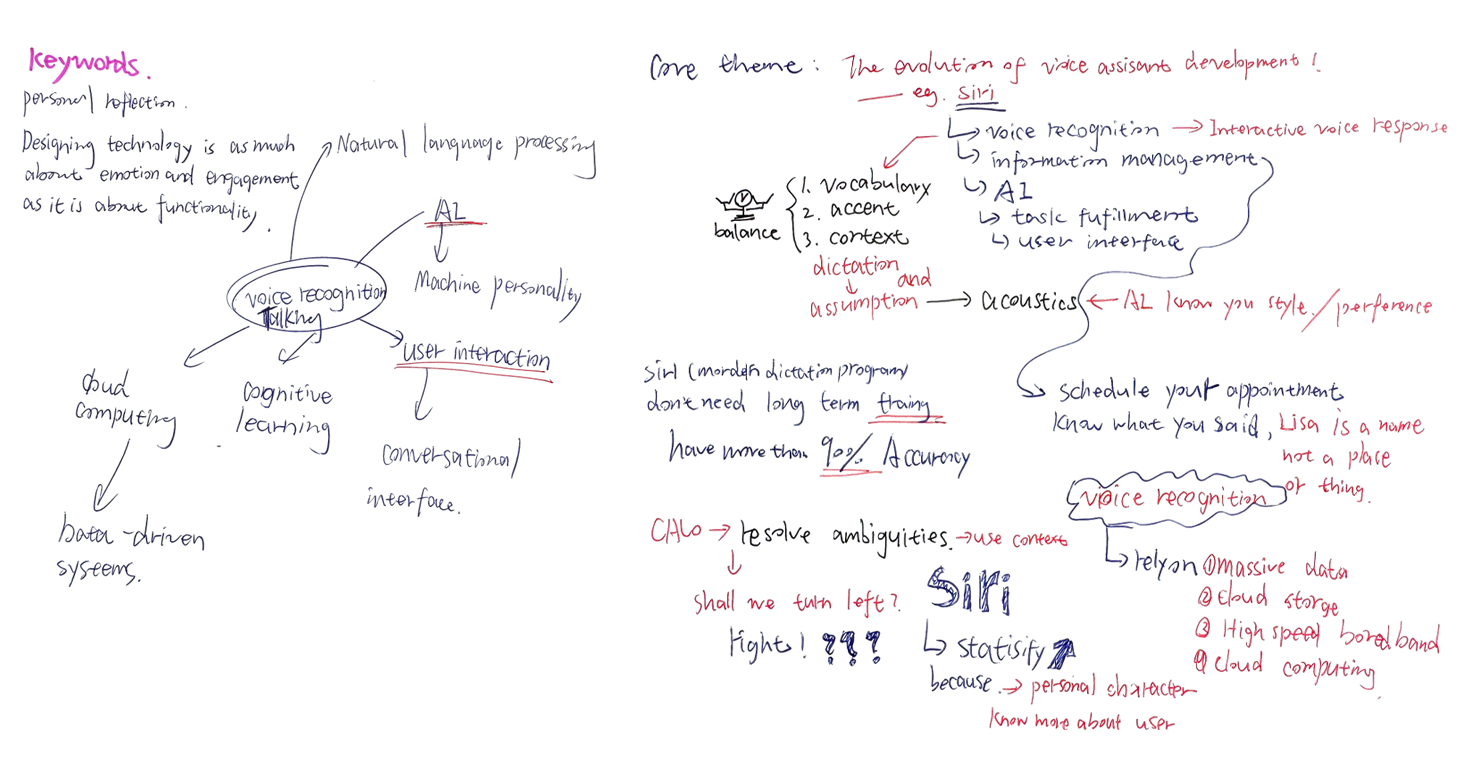 keywords.
personal reflection.
Designing technology is as much
about emotion and engagement
as it is about functionality.
Natural language processing
AI
Machine personality
voice recognition
Talking
user interaction
conversational
interface.
cognitive
learning
cloud
computing
Data-driven
systems.
Core theme: The evolution of voice assisant development!
eg. Siri
voice recognition → Interactive voice response
information management
AI
task fufillment
user interface
balance
1. vocabulary
2. accent
3. context
dictation
and
assumption → acoustics ← AI know you style/perference
schedule your appointment
know what you said, Lisa is a name
not a place
or thing.
siri (mordern dictation program)
don't need long term traing
have more than 90% Accuracy
CALO → resolve ambiguities. → use context
shall we turn left?
right! ???
Siri
statisify
because → personal character
know more about user
voice recognition
rely on ① massive data
② cloud storge
③ High speed boredband
④ cloud computing